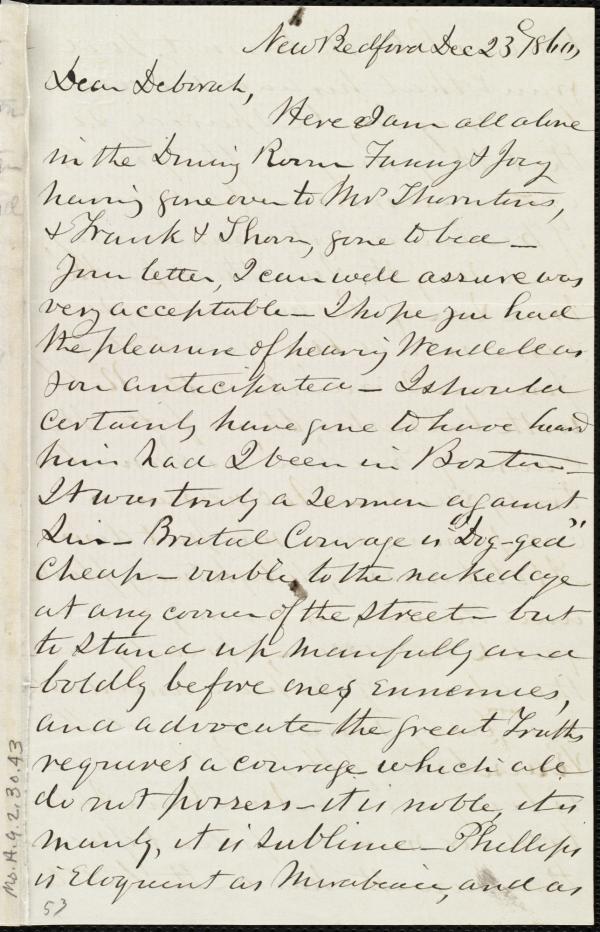 New Bedford Dec 23d 1860,
Dear Deborah,
Here I am all alone
in the Dining Room Fanny & Joey
having gone over to Mrs Thorntons,
& Frank & Thorn, gone to bed —
Your letter, I can well assure was
very acceptable — I hope you had
the pleasure of hearing Wendell as
you anticipated — I should
certainly have gone to have heard
him had I been in Boston —
It was truly a Sermon against
Sin — Brutal Courage is "Dog-ged"
Cheap — visible to the naked eye
at any corner of the street — but
to stand up manfully and
boldly before ones Ennemies,
and advocate the great Truths
requires a courage which all
do not possess — it is noble, it is
manly, it is sublime — Phillips
is Eloquent as Mirabeau, and as
53
Ms. A.9.2.30.43